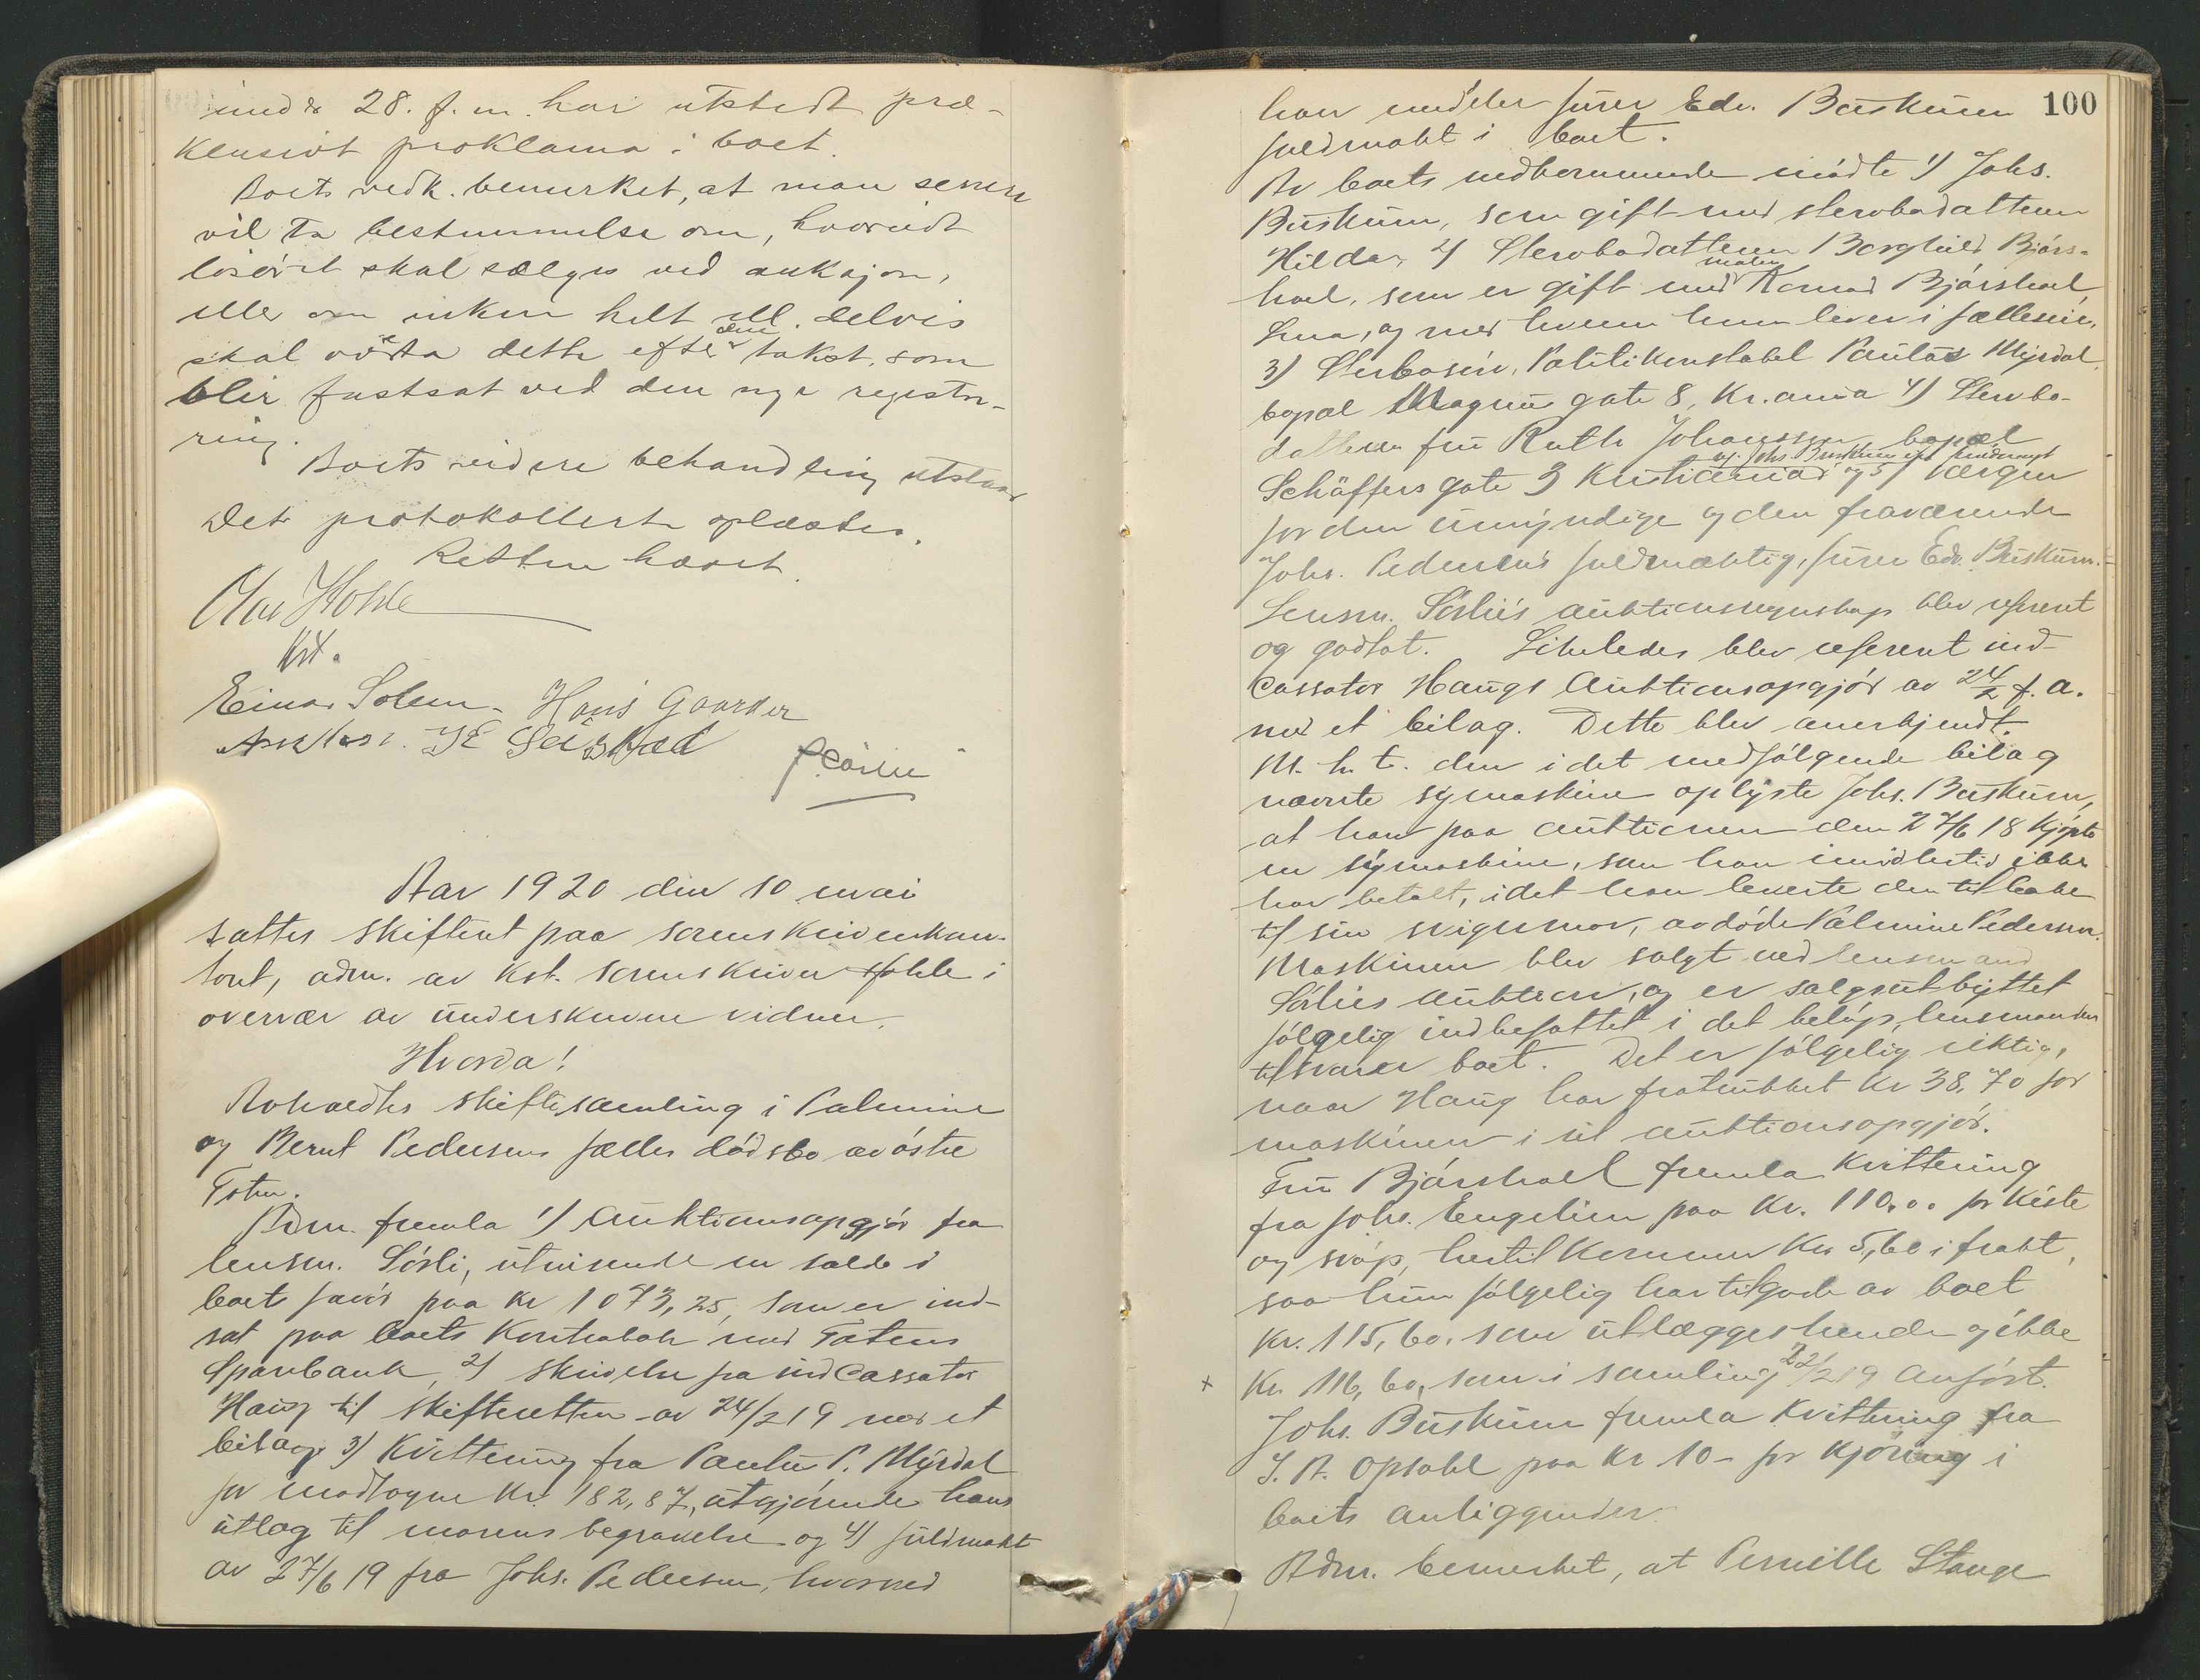 under 28. f. m. har utstedt præ-
klusivt proklama i boet.
Boets vedk. bemerket, at man senere
vil ta bestemmelse om, hvorvidt
løsøret skal sælges ved auksjon,
eller om enken helt ell. delvis
skal overta dette efter den takst, som
blir fastsat ved den nye registre-
ring.
Boets videre behandling utstaar
Det protokollerte oplæstes.
Retten hævet.
Olav Hohle
kst.
Einar Solem. Hans Gaarder
Sørlie
Aar 1920 den 10 mai
sattes skifteret paa sorenskriverkon-
toret, adm. av kst. sorenskriver Hohle i
overvær av underskrevne vidner.
Hvorda!
Avholdtes skiftesamling i Palmine
og Bernt Pedersens fælles dødsbo av østre
Toten.
Adm. fremla 1) Auktionsopgjør fra
lensm. Sørli, utvisende en saldo i
boets favør paa kr 1073,25, som er ind-
sat paa boets kontrabok med Totens
Sparebank, 2) skrivelse fra indcassator
Haug til skifteretten av 24/2 19 med et
bilag, 3) Kvittering fra Paulus P. Myrdal
for mottagne kr. 182,87, utgjørende hans
utlæg til morens begravelse og 4) fuldmakt
av 27/6 19 fra Johs. Pedersen, hvorved
100
han meddeler furer Edv. Buskum
fuldmakt i boet.
Av boets vedkommende mødte 1) Johs.
Buskum, som gift med stervbodatteren
Hilda, 2) Stervbodatteren Borghild Bjørs-
hoel, som er gift med maler Konrad Bjørshoel,
Lena, og med hvem hun lever i fælleseie,
3) Stervbosøn, Politikonstabel Paulus Myrdal,
bopæl Magnus gate 8, Kr.ania 4) Stervbo-
datteren fru Ruth Johanssen, bopæl
Schäffers gate 3 Kristiania ved Johs. Buskum og 5) værgen
for den umyndige og den fraværende
Johs. Pedersens fuldmæktig, furer Edv. Buskum.
Lensm. Sørlies auktionsregnskap blev referert
og godtat. Likeledes blev referert ind-
cassator Haugs Auktionsopgjør av 24/2 f. a.
med et bilag. Dette blev anerkjendt.
M. h. t. den i det medfølgende bilag
nævnte symaskine oplyste Johs. Buskum,
at han paa auktionen den 27/6 18 kjøpte
en symaskine, som han imidlertid ikke
har betalt, idet han leverte den tilbake
til sin svigermor, avdøde Palmine Pedersen.
Maskinen blev solgt ved lensmand
Sørlies auktion, og er salgsutbyttet
følgelig indbefattet i det beløp, lensmanden
tilsvarer boet. Det er følgelig riktig,
naar Haug har fratrukket kr 38,70 for
maskinen i sit auktionsopgjør.
Fru Bjørshoel fremla kvittering
fra Johs. Engelien paa kr. 110,00 for kiste
og svøp, hertil kommer kr 5,60 i frakt,
saa hun følgelig har tilgode av boet
kr. 115,60, som utlægges hende og ikke
x kr. 116,60, som i samling 22/2 19 anført.
Johs. Buskum fremla kvittering fra
J. A. Opsahl paa kr 10- for kjøring i
boets anliggender.
Adm. bemerket, at Pernille Stange